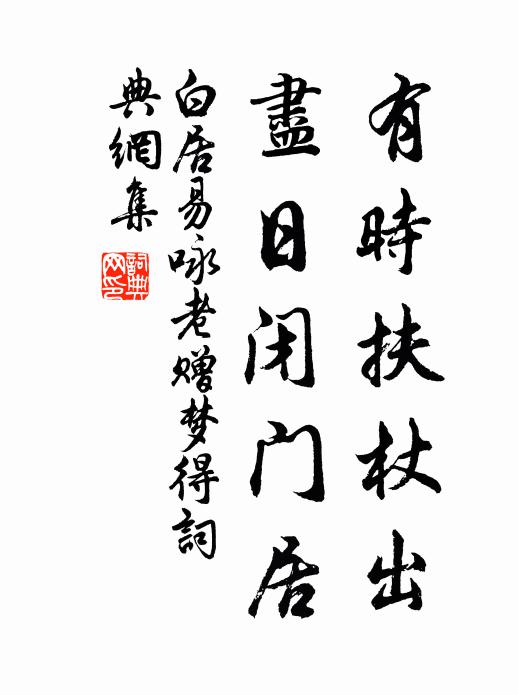 有時扶杖出
盡日閉門居
白居易咏老贈梦得詞
典網集
詞典
网印